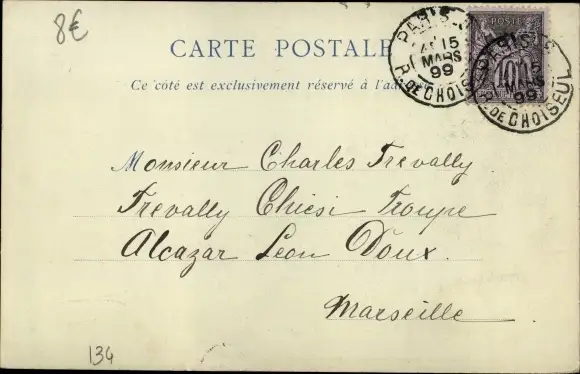 8€
CARTE POSTALE
Ce côté est exclusivement réservé à l'ad
POSTE
PARIS
15
MARS
99
R. DE CHOISEUL
PARIS
15
MARS
99
R. DE CHOISEUL
Monsieur Charles Trevally
Trevally Chiesi Troupe
Alcazar Leon Doux.
Marseille
134